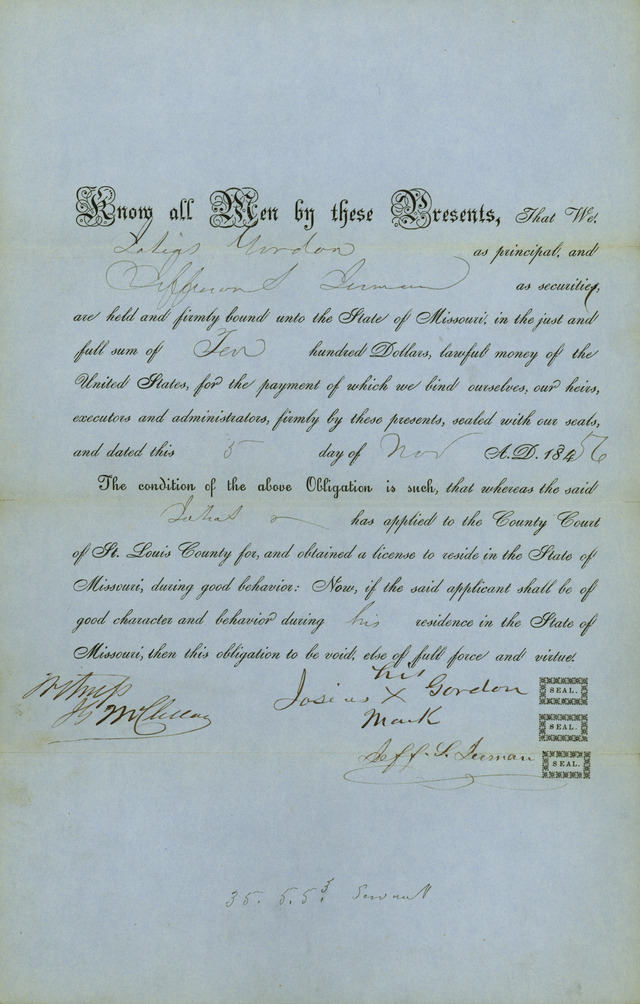 Know all Men by these Presents, That We,
Gordon as principal, and
Jefferson S as securities,
are held and firmly bound unto the State of Missouri, in the just and
full sum of Ten hundred Dollars, lawful money of the
United States, for the payment of which we bind ourselves, our heirs,
executors and administrators, firmly by these presents, sealed with our seals,
and dated this 5 day of Nov A.D. 1856
The condition of the above Obligation is such, that whereas the said
has applied to the County Court
of St. Louis County for, and obtained a license to reside in the State of
Missouri, during good behavior: Now, if the said applicant shall be of
good character and behavior during his residence in the State of
Missouri, then this obligation to be void, else of full force and virtue.
Witness
his
Josias X Gordon SEAL.
Mark SEAL.
Jeff. S. SEAL.
35. 5.5 Servant